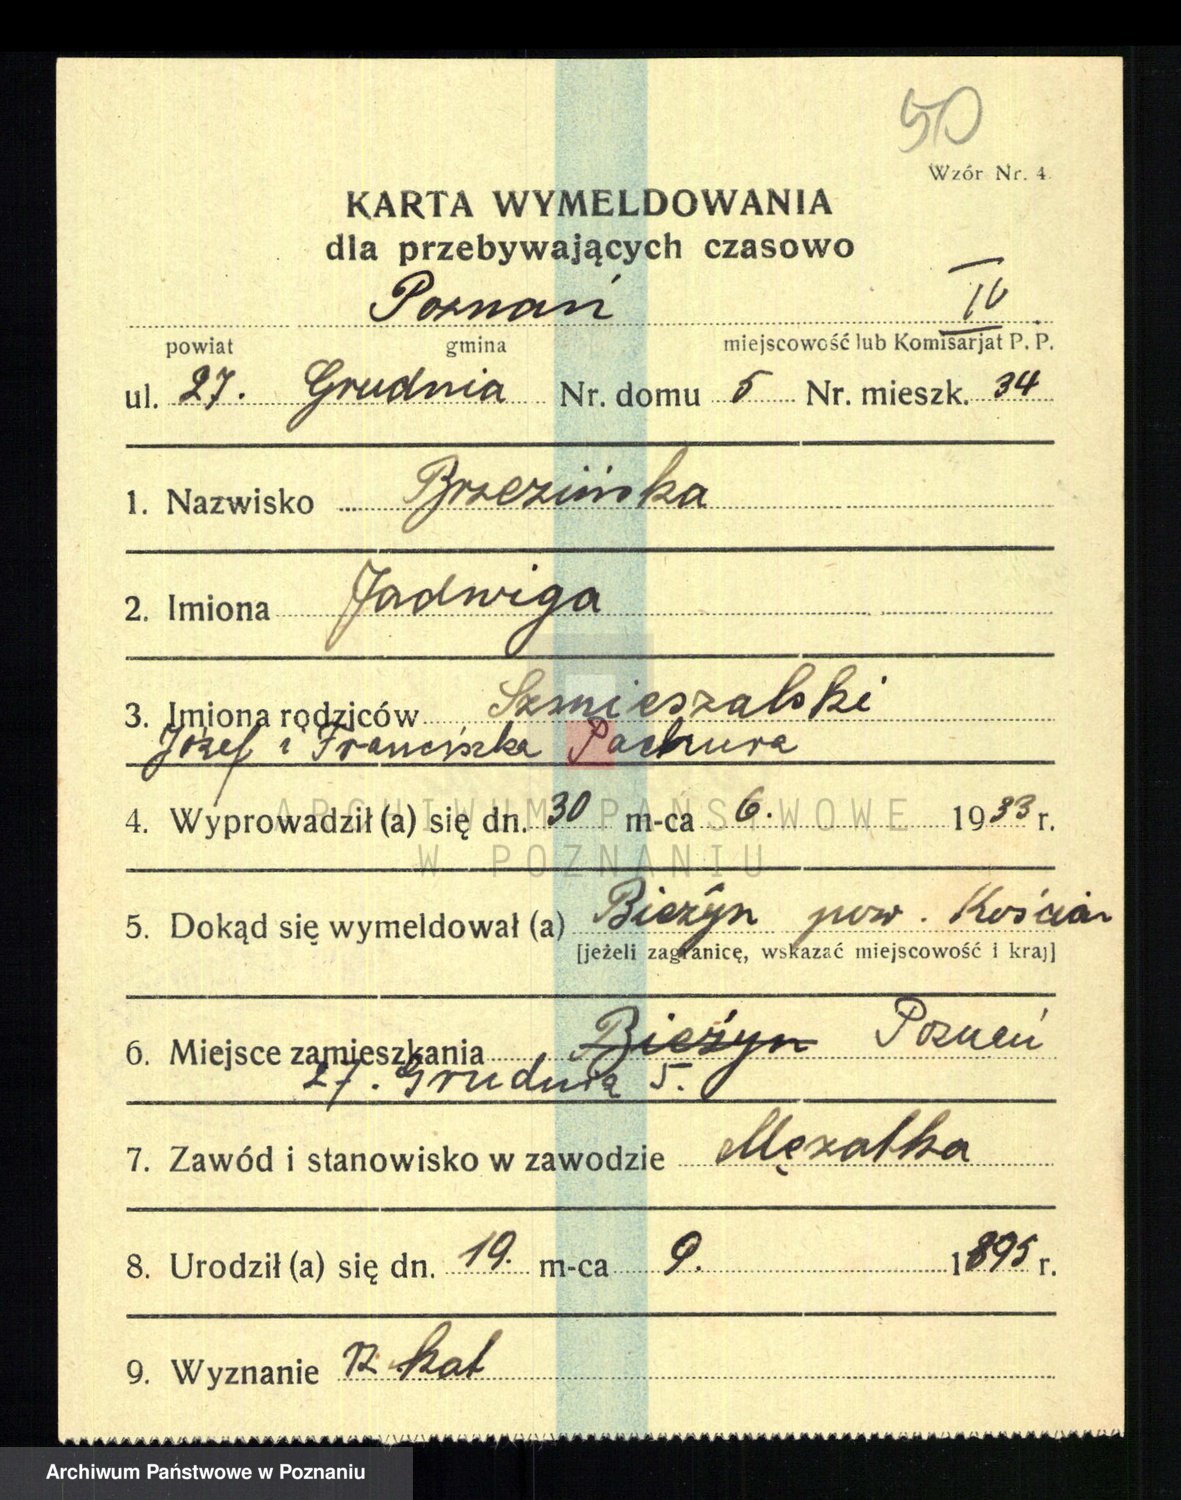 50
Wzór Nr. 4.
KARTA WYMELDOWANIA
dla przebywających czasowo
Poznań IV
powiat gmina miejscowość lub Komisarjat P. P.
ul. 27. Grudnia Nr. domu 5 Nr. mieszk. 34
1. Nazwisko Brzezińska
2. Imiona Jadwiga
3. Imiona rodziców Szmieszalski
Józef i Franciszka Pachura
4. Wyprowadził (a) się dn. 30 m-ca 6. 1933 r.
ARCHIWUM PAŃSTWOWE
W POZNANIU
5. Dokąd się wymeldował (a) Bieżyn pow. Kościan
[jeżeli zagranicę, wskazać miejscowość i kraj]
6. Miejsce zamieszkania Bieżyn Poznań
27. Grudnia 5.
7. Zawód i stanowisko w zawodzie Mężatka
8. Urodził (a) się dn. 19. m-ca 9. 1895 r.
9. Wyznanie rz. kat
Archiwum Państwowe w Poznaniu